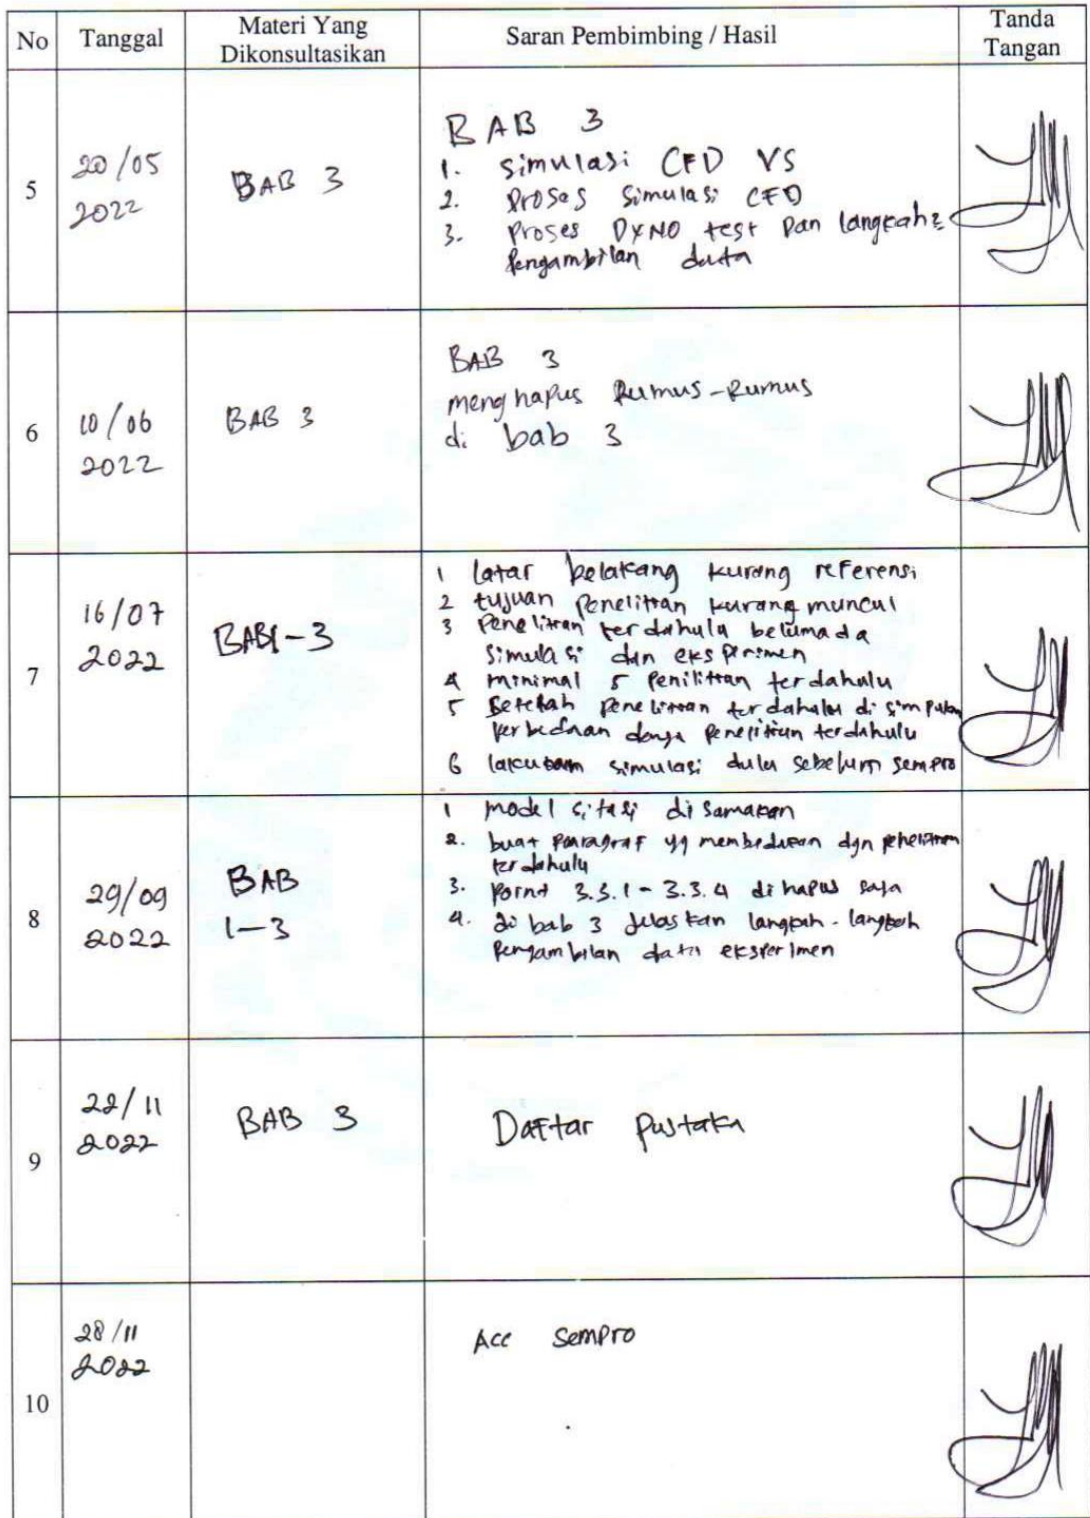 No Tanggal Materi Yang Dikonsultasikan Saran Pembimbing / Hasil Tanda Tangan
5
20/05
2022
BAB 3
BAB 3
1. Simulasi CFD VS
2. Proses Simulasi CFD
3. Proses DYNO test Dan langkah2
Pengambilan data
6
10/06
2022
BAB 3
BAB 3
menghapus Rumus-Rumus
di bab 3
7
16/07
2022
BAB1-3
1 latar belakang kurang referensi
2 tujuan penelitian kurang muncul
3 Penelitian terdahulu belum ada
Simulasi dan eksperimen
4 minimal 5 Penilitian terdahulu
5 Setelah penelitian terdahulu di simpulan
Perbedaan penelitian terdahulu
6 lakukan simulasi dulu sebelum sempro
8
29/09
2022
BAB
1-3
1 model sitasi di samakan
2. buat paragraf yg membedakan dgn penelitian
terdahulu
3. Point 3.3.1 - 3.3.4 di hapus saja
4. di bab 3 jelaskan langkah-langkah
Pengambilan data eksperimen
9
22/11
2022
BAB 3
Daftar pustaka
10
28/11
2022
Acc Sempro